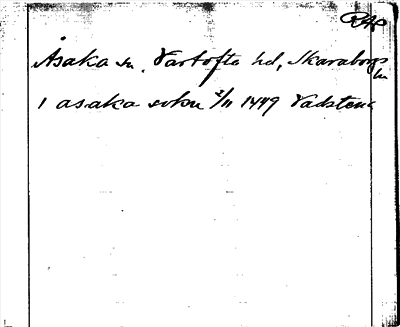 RAP
Åsaka sn. Vartofta hd, Skaraborgs
ln
I asaka sokn 2/11 1449 Vadstena